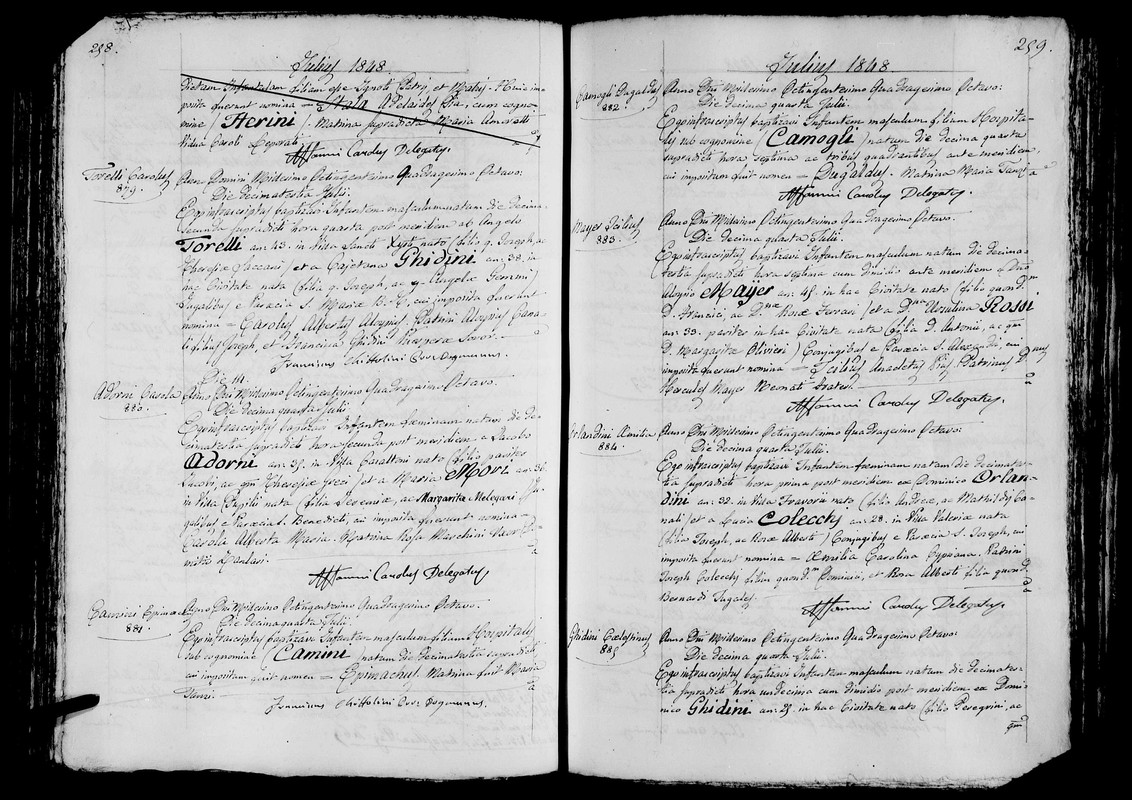 258.
Julius 1848.
posita fuerunt nomina = Adelaides Pia, cum cogno-
mine / Herini /. Matrina supradicta Maria
vidua Caroli
Affanni Carolus Delegatus.
Torelli Carolus
879.
Anno Domini Millesimo Octingentesimo Quadragesimo Octavo:
Die decimatertia Julii.
Ego infrascriptus baptizavi Infantem masculum natum die decima
secunda supradicti hora quarta post meridiem ab Angelo
Torelli an: 43. in Villa Sancti Xysti nato (filio q. Joseph, ac
Theresiæ Saccani) et a Cajetana Ghidini an: 38. in
hac Civitate nata (filia q. Joseph, ac q. Angela Gemmi)
Jugalibus e Parœcia S. Mariæ B. N., cui imposita fuerunt
nomina = Carolus, Albertus Aloysius. Patrini Aloysius
filius Joseph, et Francisca Ghidini Soror.
Franciscus Chittolini Cons. Dogmanus.
Die 14.
Adorni Carola
880.
Anno Dni Millesimo Octingentesimo Quadragesimo Octavo.
Die decima quarta Julii
Ego infrascriptus baptizavi Infantem fæminam natam die De-
cimatertia supradicti hora secunda post meridiem a Jacobo
Adorni an: 35. in Villa Baraltoni nato (filio pariter
Jacobi, ac qm Theresiæ Greci) et a Maria Mori an: 36.
in Villa nata (filia Jeremiæ, ac Margarita Melegari) Ju-
galibus e Parœcia S. Benedicti, cui imposita fuerunt nomina =
Carola Alberta Maria. Matrina Rosa Marchini
Affanni Carolus Delegatus
Camini Epimacus
881.
Anno Dni Millesimo Octingentesimo Quadragesimo Octavo.
Die decima quarta Julii
Ego infrascriptus baptizavi Infantem masculum filium Hospitalis
sub cognomine (Camini) natum die decimatertia supradicti
cui impositum fuit nomen = Epimachus. Matrina fuit Maria
Franciscus Chittolini Cons. Dogmanus.
259.
Julius 1848
Camogli Dugaldus
882.
Anno Dni Millesimo Octingentesimo Quadragesimo Octavo:
Die decima quarta Julii.
Ego infrascriptus baptizavi Infantem masculum filium Hospita-
lis sub cognomine (Camogli) natum die decima quarta
supradicti hora septima ac tribus quadrantibus ante meridiem,
cui impositum fuit nomen = Dugaldus. Matrina Maria
Affanni Carolus Delegatus.
Mayer Scilius
883.
Anno Dni Millesimo Octingentesimo Quadragesimo Octavo.
Die decima quarta Julii.
Ego infrascriptus baptizavi Infantem masculum natum die decima-
tertia supradicti hora septima cum dimidio ante meridiem a Dno
Aloysio Mayer an: 45. in hac Civitate nato (filio quond.m
D. Francisci, ac Dnæ Rosæ Ferrari) et a Dna Ursulina Rossi
an: 33. pariter in hac Civitate nata (filia D. Antonii, ac qm
D. Margaritæ Olivieri) Conjugibus e Parœcia S. Alexandri, cui
imposita fuerunt nomina = Scilius Anacletus Pius. Patrinus Dnus
Hercules Mayer Neonati frater.
Affanni Carolus Delegatus.
Orlandini Æmilia
884
Anno Dni Millesimo Octingentesimo Quadragesimo Octavo:
Die decima quarta Julii.
Ego infrascriptus baptizavi Infantem fæminam natam die decimater-
tia supradicti hora prima post meridiem ex Dominico Orlan-
dini an: 32. in Villa nato (filio Andreæ, ac Mathildis Ca-
nali) et a Lucia Colecchi an: 28. in Villa Valeriæ nata
(filia Joseph, ac Rosæ Alberti) Conjugibus e Parœcia S. Joseph, cui
imposita fuerunt nomina = Æmilia Carolina Cypriana. Patrini
Joseph Colecchi filius quond.m Dominici, et Rosa Alberti filia quond.
Bernardi Jugales.
Affanni Carolus Delegatus.
Ghidini Cœlestinus
885
Anno Dni Millesimo Octingentesimo Quadragesimo Octavo:
Die decima quarta Julii.
Ego infrascriptus baptizavi Infantem masculum natum die decimater-
tia supradicti hora undecima cum dimidio post meridiem ex Domi-
nico Ghidini an: 25. in hac Civitate nato (filio Peregrini, ac
qm